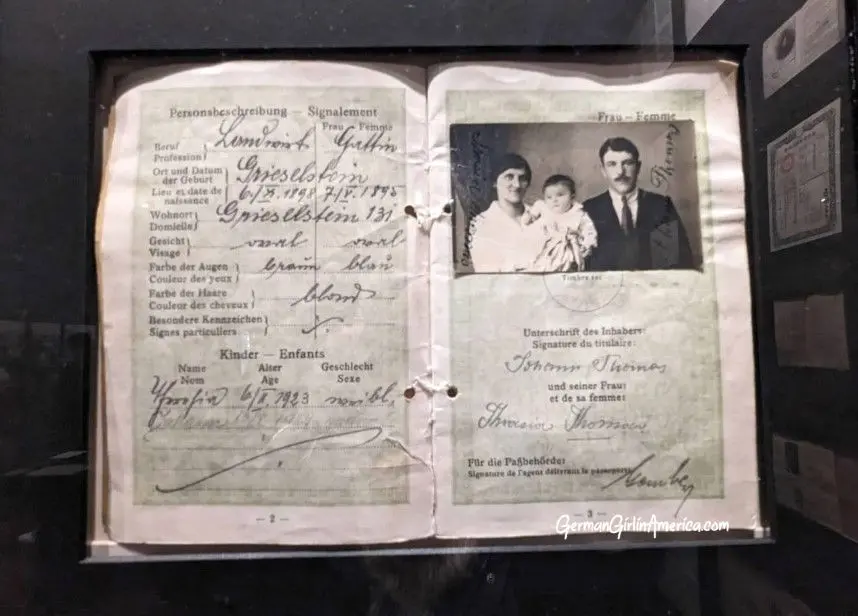 Personsbeschreibung — Signalement
Frau - Femme
Beruf
Profession
Landwirt Gattin
Ort und Datum
der Geburt
Lieu et date de
naissance
Grieselstein
6/XI.1898 7/V.1895
Wohnort
Domicile
Grieselstein 131
Gesicht
Visage
oval oval
Farbe der Augen
Couleur des yeux
braun blau
Farbe der Haare
Couleur des cheveux
blond
Besondere Kennzeichen
Signes particuliers
Kinder — Enfants
Name Alter Geschlecht
Nom Age Sexe
6/II.1923 weibl.
— 2 —
Frau - Femme
Timbre sec
Unterschrift des Inhabers:
Signature du titulaire:
Johann Thomas
und seiner Frau:
et de sa femme:
Thomas
Für die Paßbehörde:
Signature de l'agent délivrant le passeport:
— 3 —
GermanGirlinAmerica.com